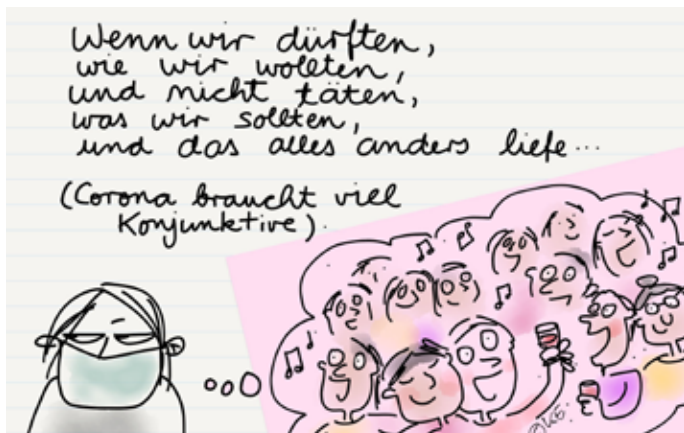 Wenn wir dürften,
wie wir wollten,
und nicht täten,
was wir sollten,
und das alles anders liefe...
(Corona braucht viel
Konjunktive).